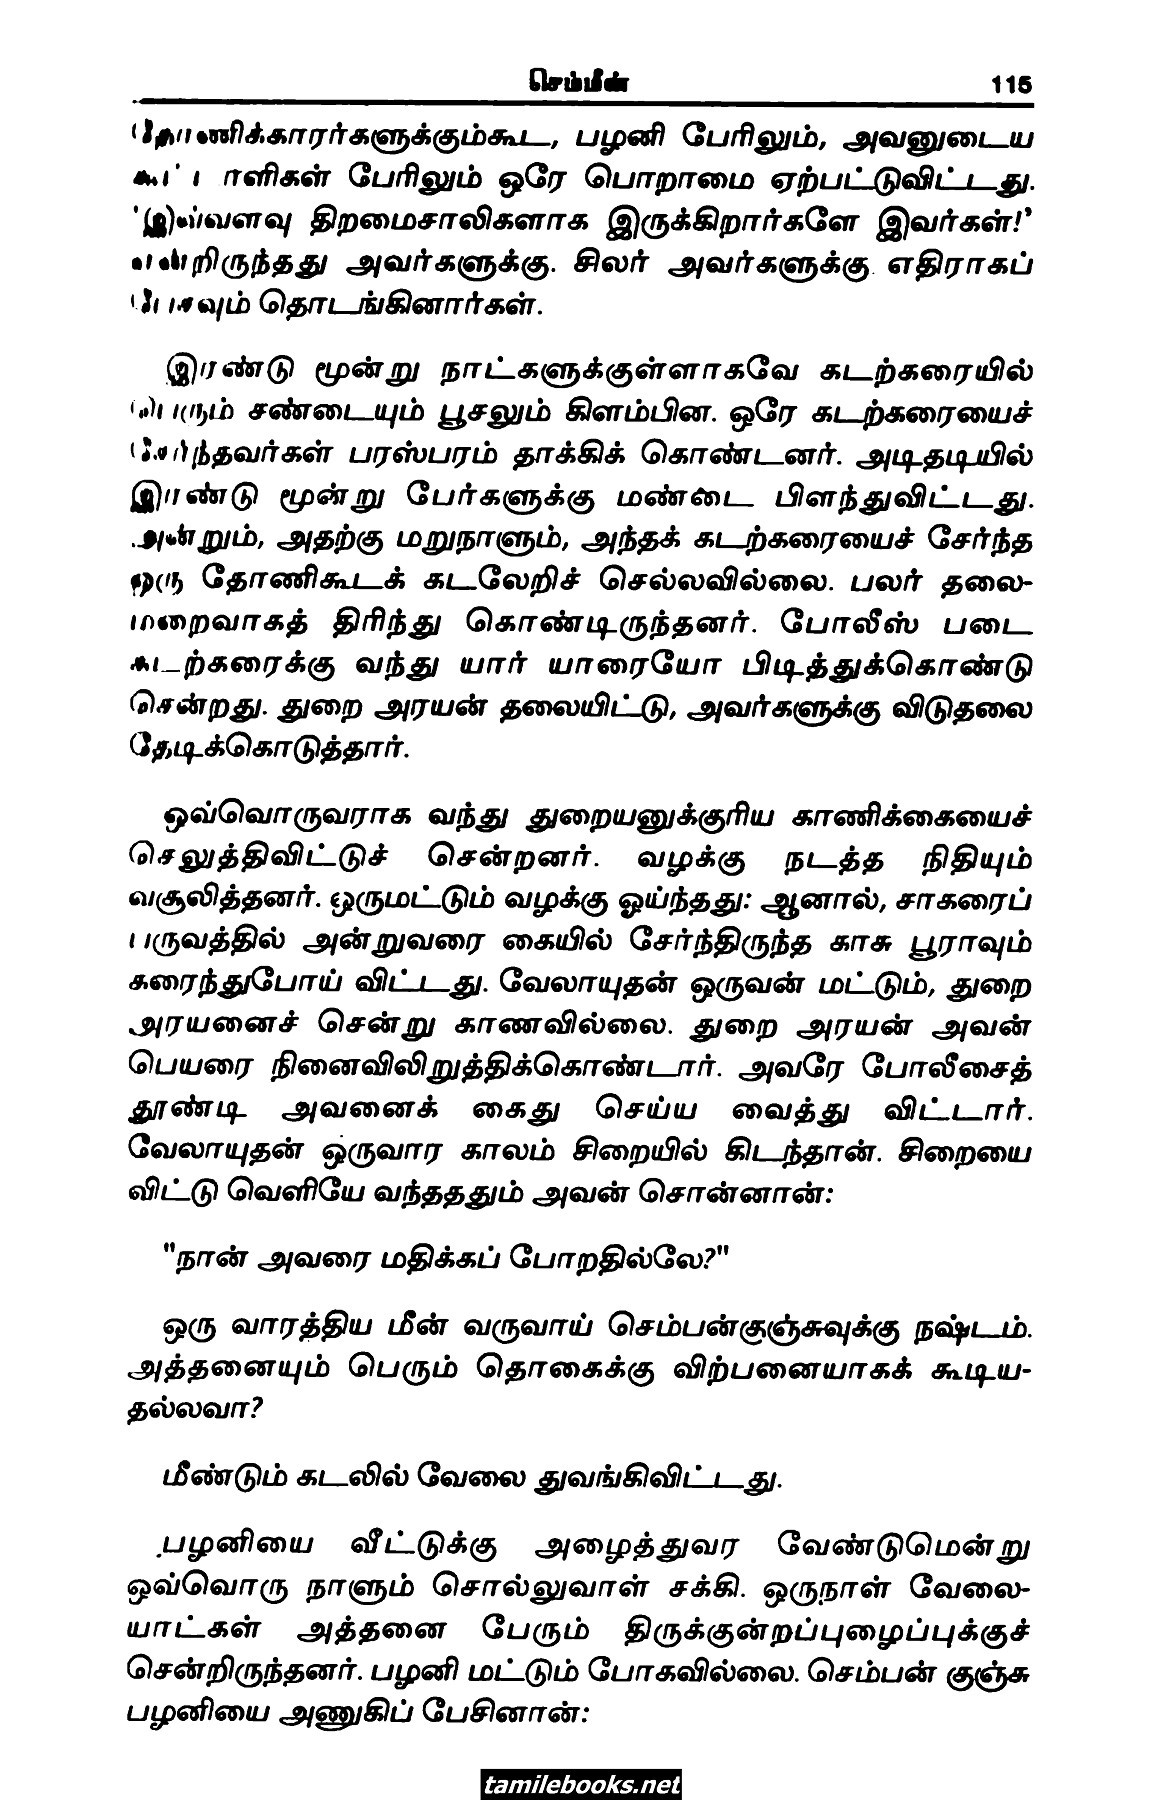 செம்மீன் 115
தோணிக்காரர்களுக்கும்கூட, பழனி பேரிலும், அவனுடைய
கூட்டாளிகள் பேரிலும் ஒரே பொறாமை ஏற்பட்டுவிட்டது.
'இவ்வளவு திறமைசாலிகளாக இருக்கிறார்களே இவர்கள்!'
என்றிருந்தது அவர்களுக்கு. சிலர் அவர்களுக்கு எதிராகப்
பேசவும் தொடங்கினார்கள்.
இரண்டு மூன்று நாட்களுக்குள்ளாகவே கடற்கரையில்
பெரும் சண்டையும் பூசலும் கிளம்பின. ஒரே கடற்கரையைச்
சேர்ந்தவர்கள் பரஸ்பரம் தாக்கிக் கொண்டனர். அடிதடியில்
இரண்டு மூன்று பேர்களுக்கு மண்டை பிளந்துவிட்டது.
அன்றும், அதற்கு மறுநாளும், அந்தக் கடற்கரையைச் சேர்ந்த
ஒரு தோணிகூடக் கடலேறிச் செல்லவில்லை. பலர் தலை-
மறைவாகத் திரிந்து கொண்டிருந்தனர். போலீஸ் படை
கடற்கரைக்கு வந்து யார் யாரையோ பிடித்துக்கொண்டு
சென்றது. துறை அரயன் தலையிட்டு, அவர்களுக்கு விடுதலை
தேடிக்கொடுத்தார்.
ஒவ்வொருவராக வந்து துறையனுக்குரிய காணிக்கையைச்
செலுத்திவிட்டுச் சென்றனர். வழக்கு நடத்த நிதியும்
வசூலித்தனர். ஒருமட்டும் வழக்கு ஓய்ந்தது: ஆனால், சாகரைப்
பருவத்தில் அன்றுவரை கையில் சேர்ந்திருந்த காசு பூராவும்
கரைந்துபோய் விட்டது. வேலாயுதன் ஒருவன் மட்டும், துறை
அரயனைச் சென்று காணவில்லை. துறை அரயன் அவன்
பெயரை நினைவிலிறுத்திக்கொண்டார். அவரே போலீசைத்
தூண்டி அவனைக் கைது செய்ய வைத்து விட்டார்.
வேலாயுதன் ஒருவார காலம் சிறையில் கிடந்தான். சிறையை
விட்டு வெளியே வந்தததும் அவன் சொன்னான்:
"நான் அவரை மதிக்கப் போறதில்லே?"
ஒரு வாரத்திய மீன் வருவாய் செம்பன்குஞ்சுவுக்கு நஷ்டம்.
அத்தனையும் பெரும் தொகைக்கு விற்பனையாகக் கூடிய-
தல்லவா?
மீண்டும் கடலில் வேலை துவங்கிவிட்டது.
பழனியை வீட்டுக்கு அழைத்துவர வேண்டுமென்று
ஒவ்வொரு நாளும் சொல்லுவாள் சக்கி. ஒருநாள் வேலை-
யாட்கள் அத்தனை பேரும் திருக்குன்றப்புழைப்புக்குச்
சென்றிருந்தனர். பழனி மட்டும் போகவில்லை. செம்பன் குஞ்சு
பழனியை அணுகிப் பேசினான்:
tamilebooks.net